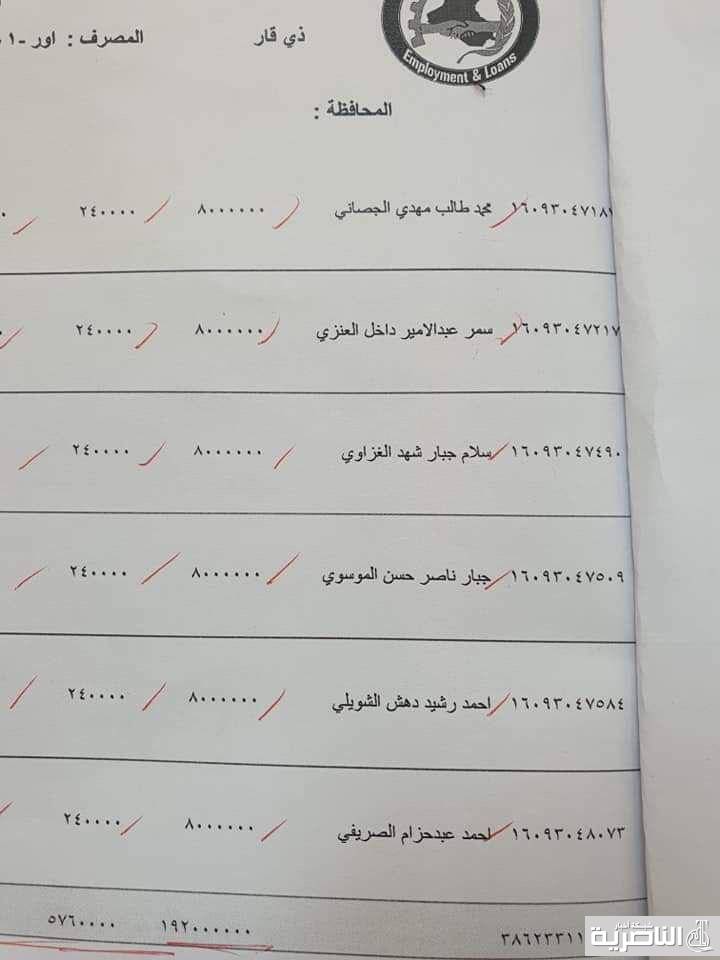 Employment & Loans
ذي قار المصرف : اور -١
المحافظة :
١٦٠٩٣٠٤٧١٨ محمد طالب مهدي الجصاني ٨٠٠٠٠٠٠ ٢٤٠٠٠٠
١٦٠٩٣٠٤٧٢١٧ سمر عبدالامير داخل العنزي ٨٠٠٠٠٠٠ ٢٤٠٠٠٠
١٦٠٩٣٠٤٧٤٩٠ سلام جبار شهد الغزاوي ٨٠٠٠٠٠٠ ٢٤٠٠٠٠
١٦٠٩٣٠٤٧٥٠٩ جبار ناصر حسن الموسوي ٨٠٠٠٠٠٠ ٢٤٠٠٠٠
١٦٠٩٣٠٤٧٥٨٤ احمد رشيد دهش الشويلي ٨٠٠٠٠٠٠ ٢٤٠٠٠٠
١٦٠٩٣٠٤٨٠٧٣ احمد عبدحزام الصريفي ٨٠٠٠٠٠٠ ٢٤٠٠٠٠
٣٨٦٢٣٣١١ ١٩٢٠٠٠٠٠٠ ٥٧٦٠٠٠٠
شبكة أخبار
الناصرية